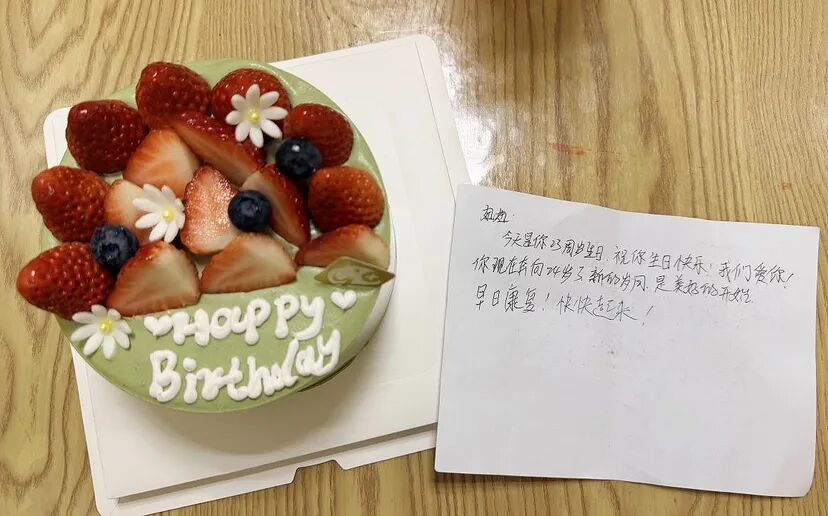 Happy
Birthday
今天是你23周岁生日，祝你生日快乐！我们爱你！
你现在奔向24岁了，新的岁月，是美好的开始
早日康复！快快起来！